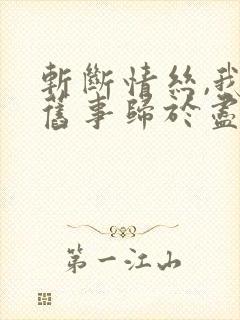 斬斷情絲,我
舊事歸於盡
第一江山